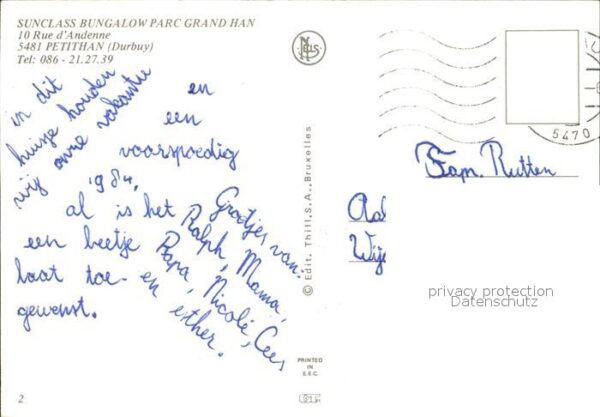 SUNCLASS BUNGALOW PARC GRAND HAN
10 Rue d'Andenne
5481 PETITHAN (Durbuy)
Tel: 086 - 21.27.39
in dit
huisje houden
wij onze vakantie
en
een
voorspoedig
1984,
al is het
een beetje
laat toe-
gewenst.
Groetjes van:
Ralph, Mama,
Papa, Nicole, Cees
en esther.
NELS
© Edit. Thill, S.A., Bruxelles
PRINTED
IN
E.E.C.
5470
Fam. Rutten
Aal
Wije
privacy protection
Datenschutz
2